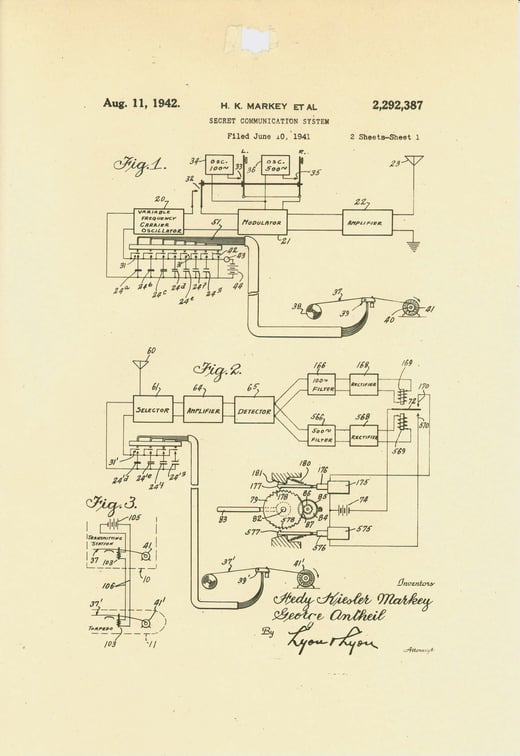 Aug. 11, 1942.
H. K. MARKEY ET AL
2,292,387
SECRET COMMUNICATION SYSTEM
Filed June 10, 1941
2 Sheets-Sheet 1
Fig.1.
34
OSC. 100~
33
L.
36
OSC. 500~
R.
35
23
32
20
VARIABLE FREQUENCY CARRIER OSCILLATOR
51
MODULATOR
21
22
AMPLIFIER
31
42
43
44
24a
24b
24c
24d
24e
24f
24g
38
37
39
40
41
60
Fig.2.
61
SELECTOR
64
AMPLIFIER
65
DETECTOR
166
100~ FILTER
168
RECTIFIER
169
170
72
566
500~ FILTER
568
RECTIFIER
569
570
31'
24'd
24'e
24'f
24'g
181
180
176
177
175
79
178
86
85
84
74
83
82
578
87
577
576
575
Fig.3.
105
TRANSMITTING STATION
41
37
103'
10
106
37'
41'
TORPEDO
103
11
37'
39'
41'
Inventors
Hedy Kiesler Markey
George Antheil
By
Lyon & Lyon
Attorneys